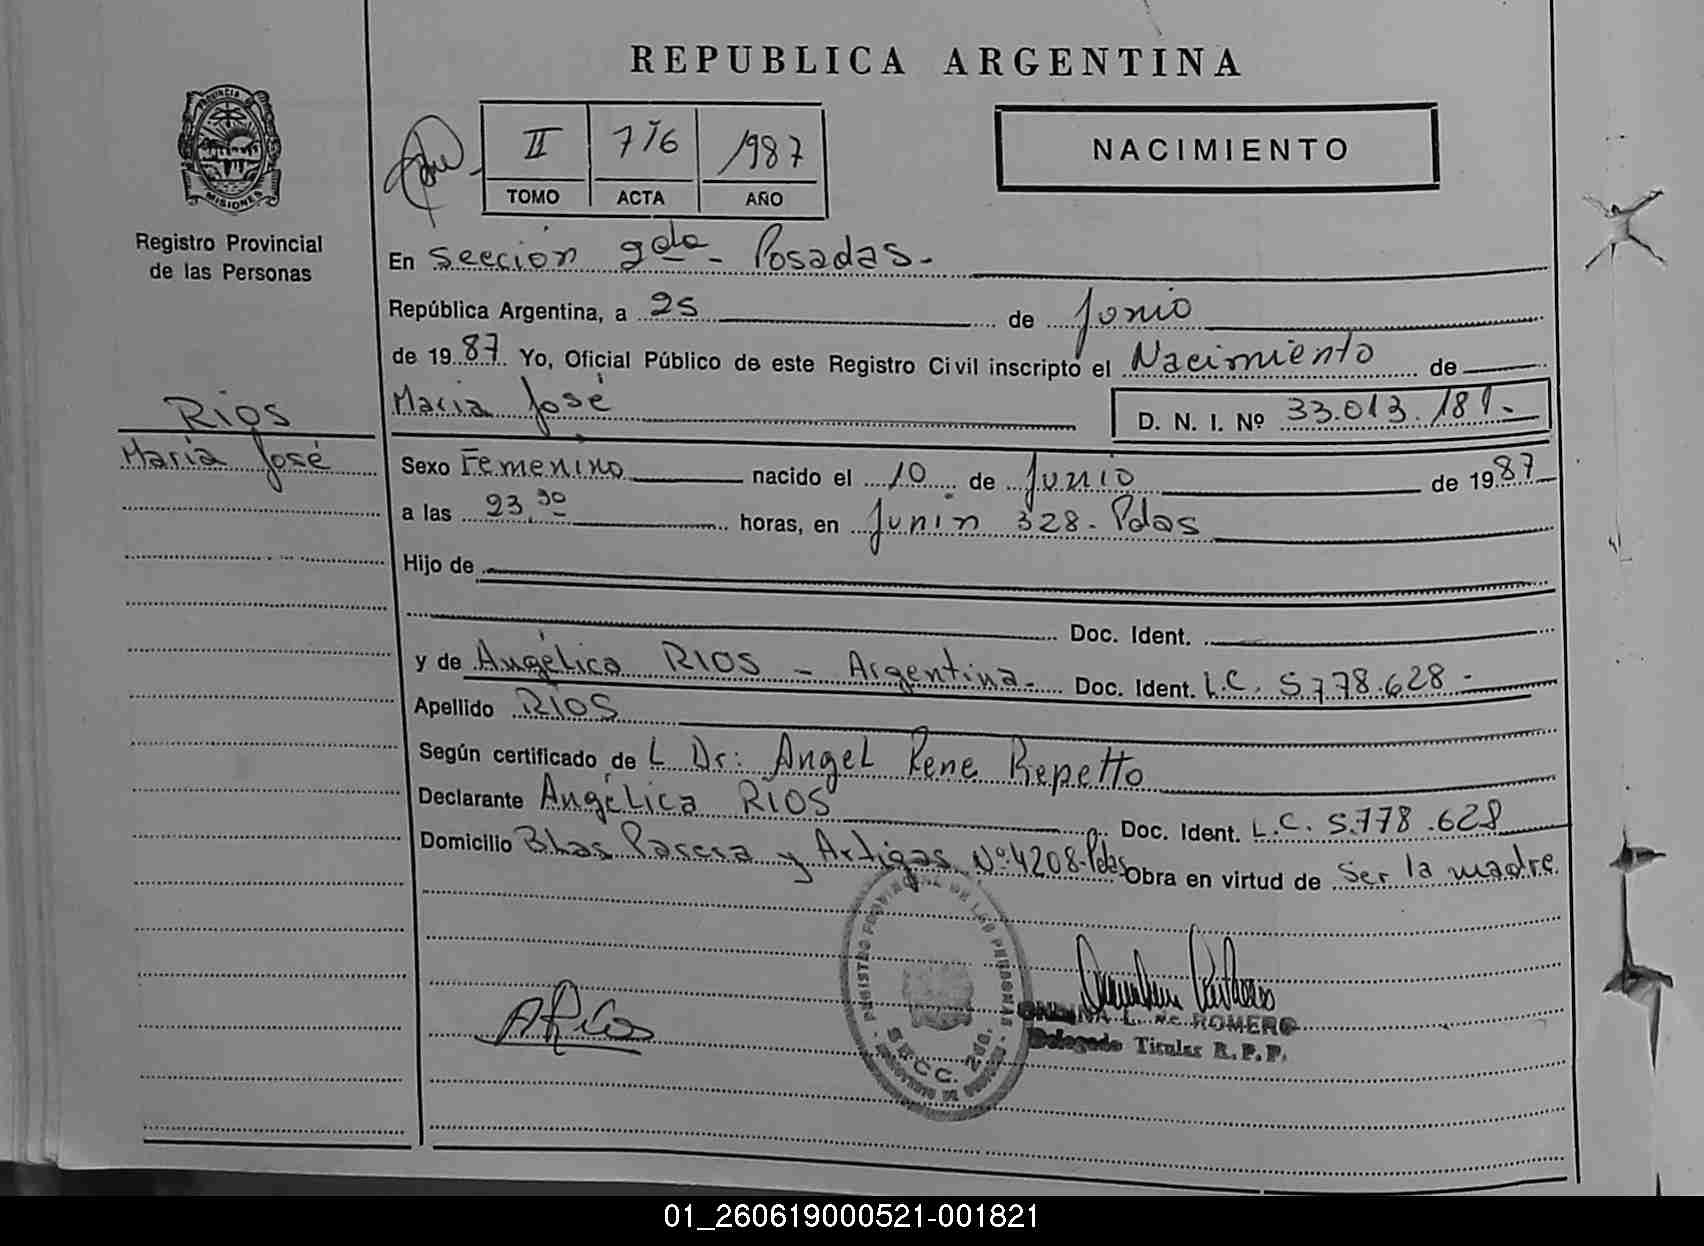 REPUBLICA ARGENTINA
PROVINCIA DE
MISIONES
Registro Provincial
de las Personas
II 716 1987
TOMO ACTA AÑO
NACIMIENTO
En Sección 2da - Posadas.-
República Argentina, a 25 de Junio
de 1987 Yo, Oficial Público de este Registro Civil inscripto el Nacimiento de
María José D. N. I. Nº 33.013.181.-
Rios
María José
Sexo Femenino nacido el 10 de Junio de 1987
a las 23,30 horas, en Junín 328 - Pdas
Hijo de
Doc. Ident.
y de Angélica RIOS - Argentina.- Doc. Ident. L.C. 5.778.628-
Apellido RIOS
Según certificado de L Dr: Angel Rene Repetto
Declarante Angélica RIOS Doc. Ident. L.C. 5.778.628
Domicilio Blas Parera y Artigas Nº 4208-Pdas Obra en virtud de Ser la madre.
REGISTRO PROVINCIAL DE LAS PERSONAS
SECC. 2da.
ARios
L. de ROMERO
Delegado Titular R.P.P.
01_260619000521-001821